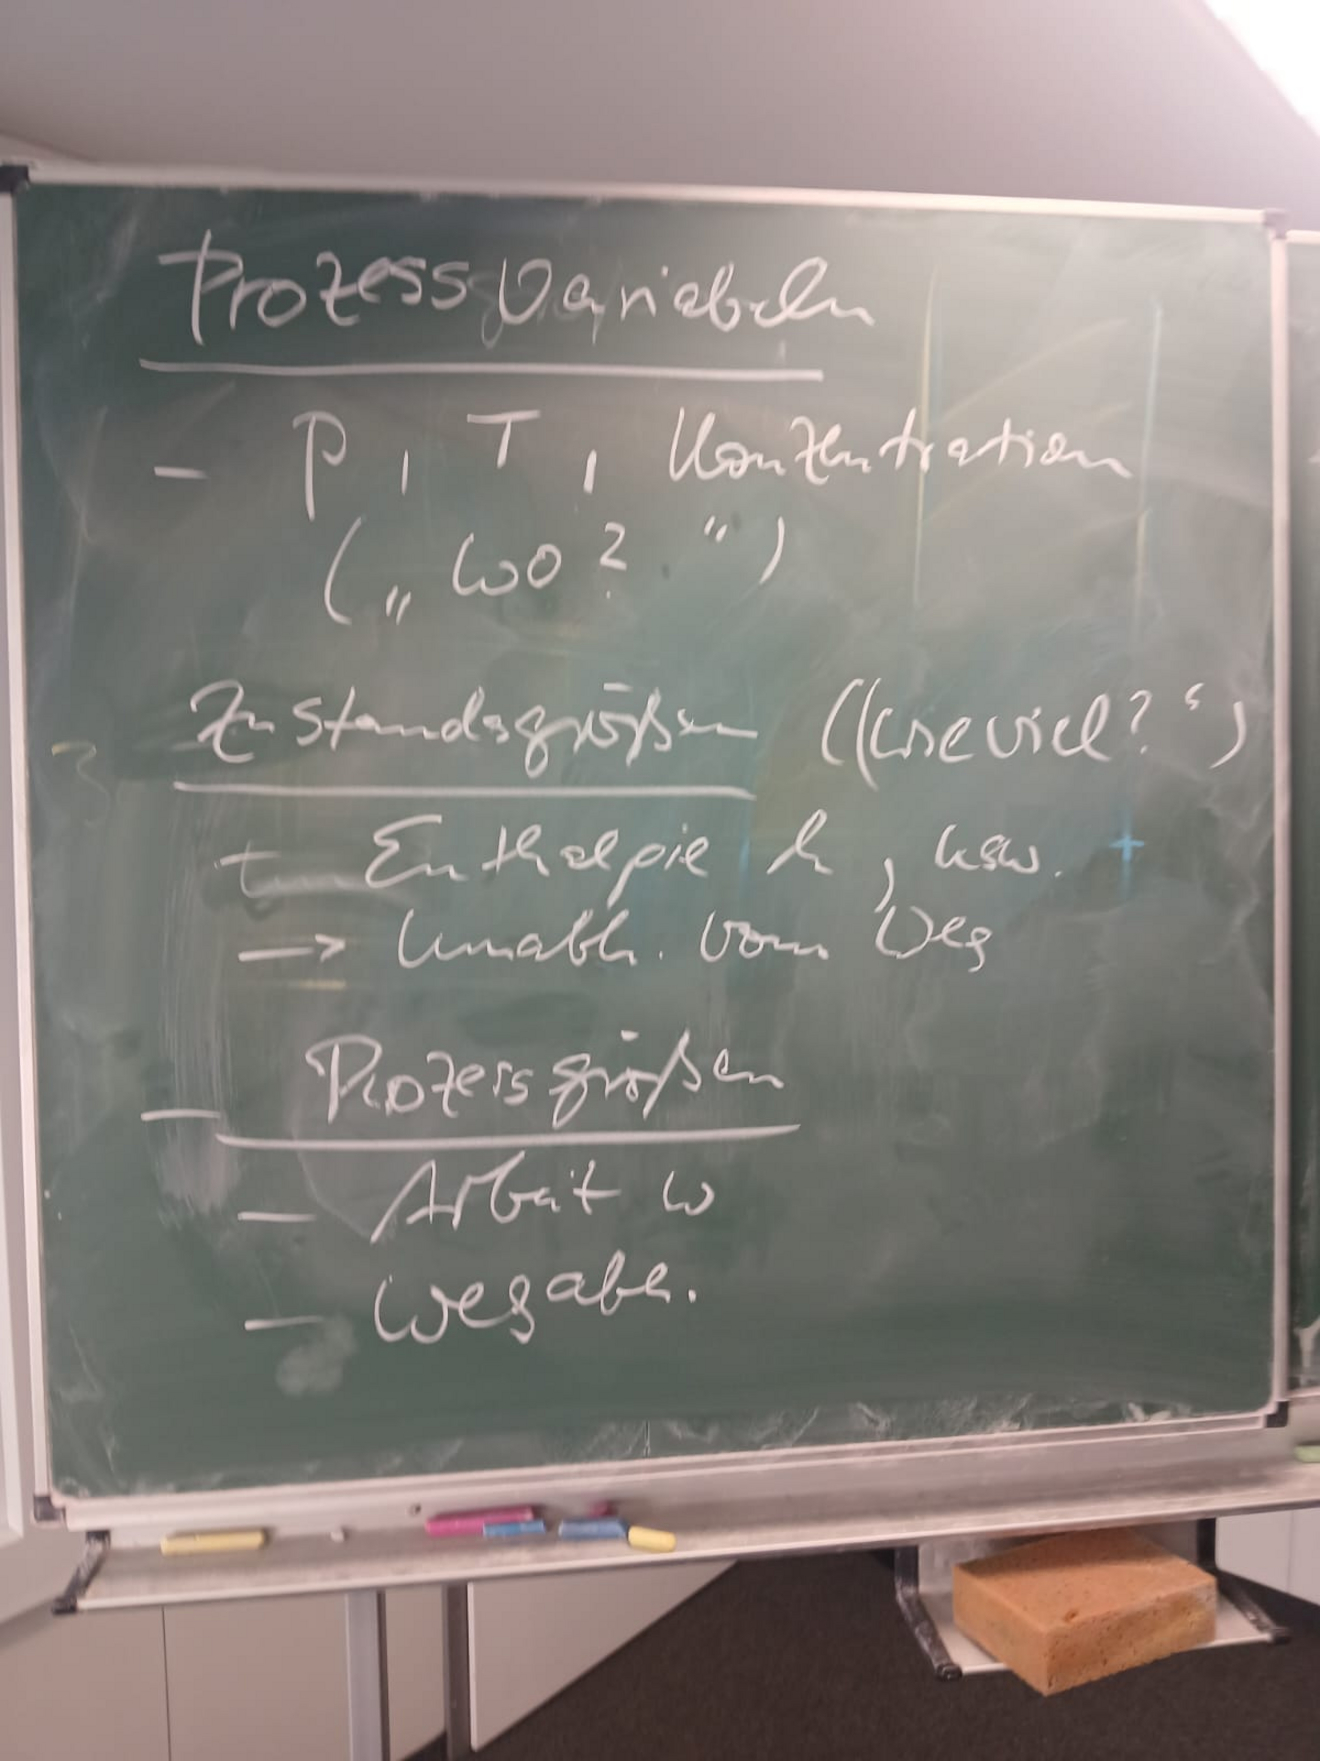 Prozessvariabeln
- P, T, Konzentration
(„Wo?“)
Zustandsgrößen („Wieviel?“)
- Enthalpie h, usw.
-> Unabh. vom Weg
- Prozessgrößen
- Arbeit w
- Wegabh.